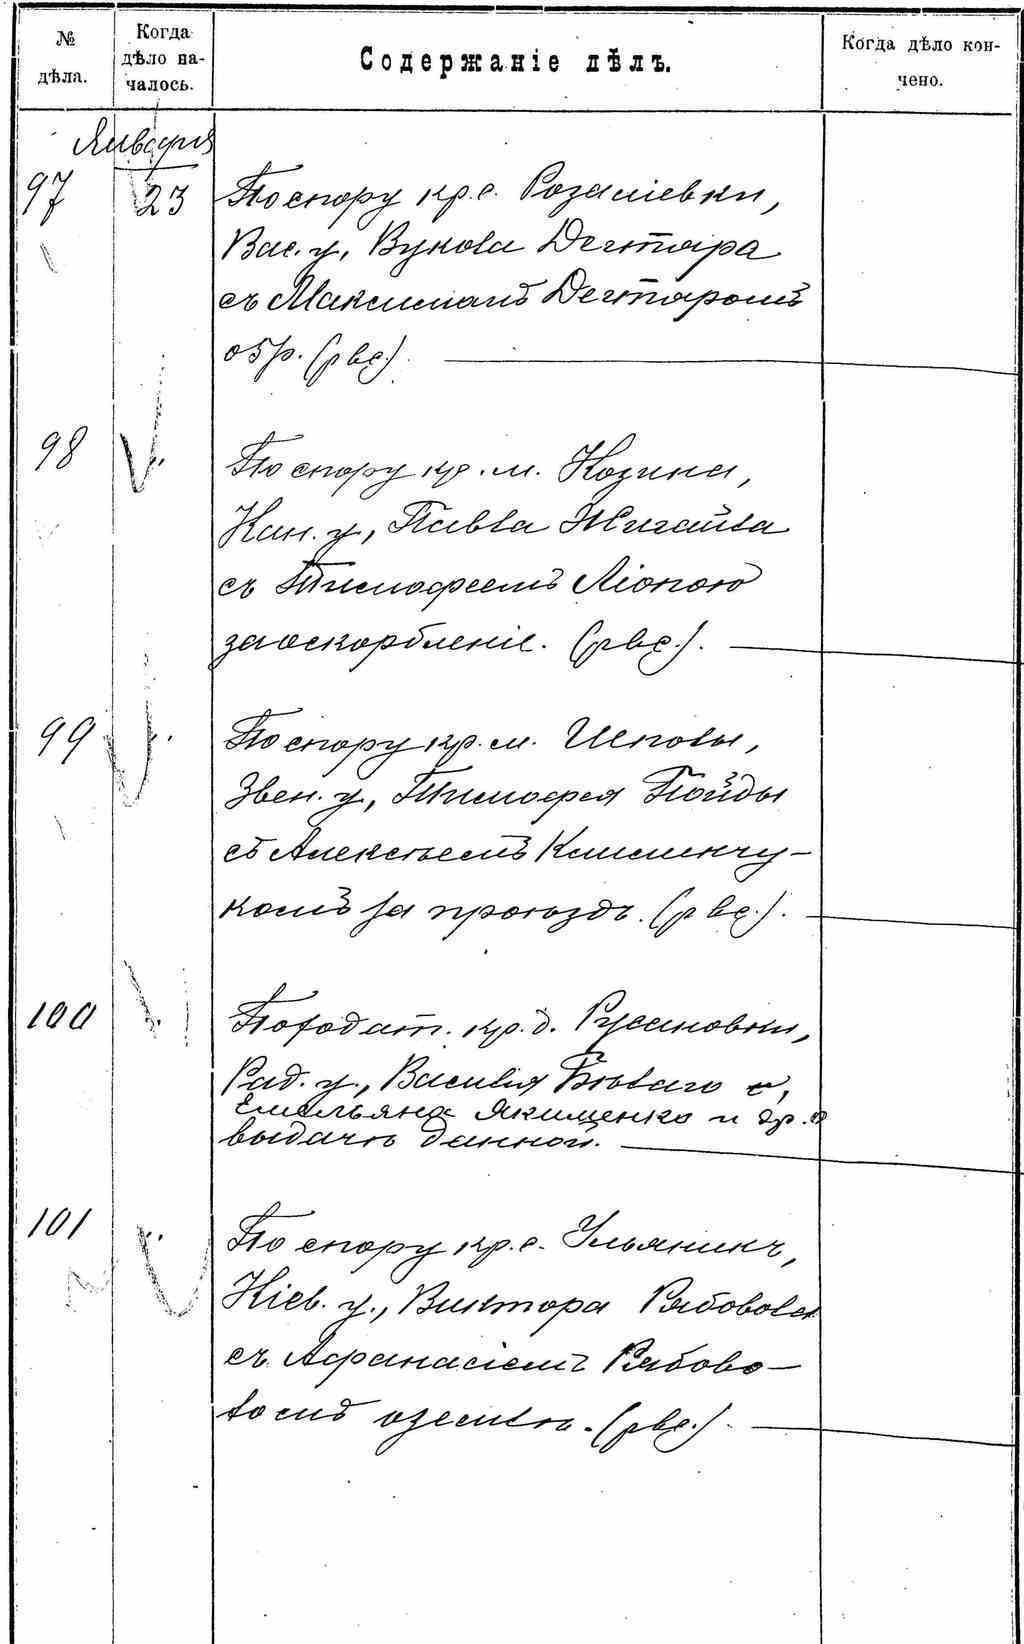 №
дѣла.
Когда
дѣло на-
чалось.
Содержаніе дѣлъ.
Когда дѣло кон-
чено.
Января
97 23 По спору кр. с. Розаліевки,
Вас. у., Вукола Дегтяра
съ Максимомъ Дегтяромъ
о 5 р. (рвс.).
98 По спору кр. м. Козина,
Кан. у., Павла
съ Тимофеемъ Ліопою
за оскорбленіе. (рвс.).
99 По спору кр. м. Шполы,
Звен. у., Тимофея Пойды
съ Алексѣемъ Климчу-
комъ за проѣздъ. (рвс.).
100 По ходат. кр. д. Русановки,
Рад. у., Василія Бѣлаго с,
Емельяна Якименко и др. о
выдачѣ данной.
101 По спору кр. с. Ульяникъ,
Кіев. у., Виктора Рябовола
съ Афанасіемъ Рябово-
ломъ о землѣ. (рвс.).